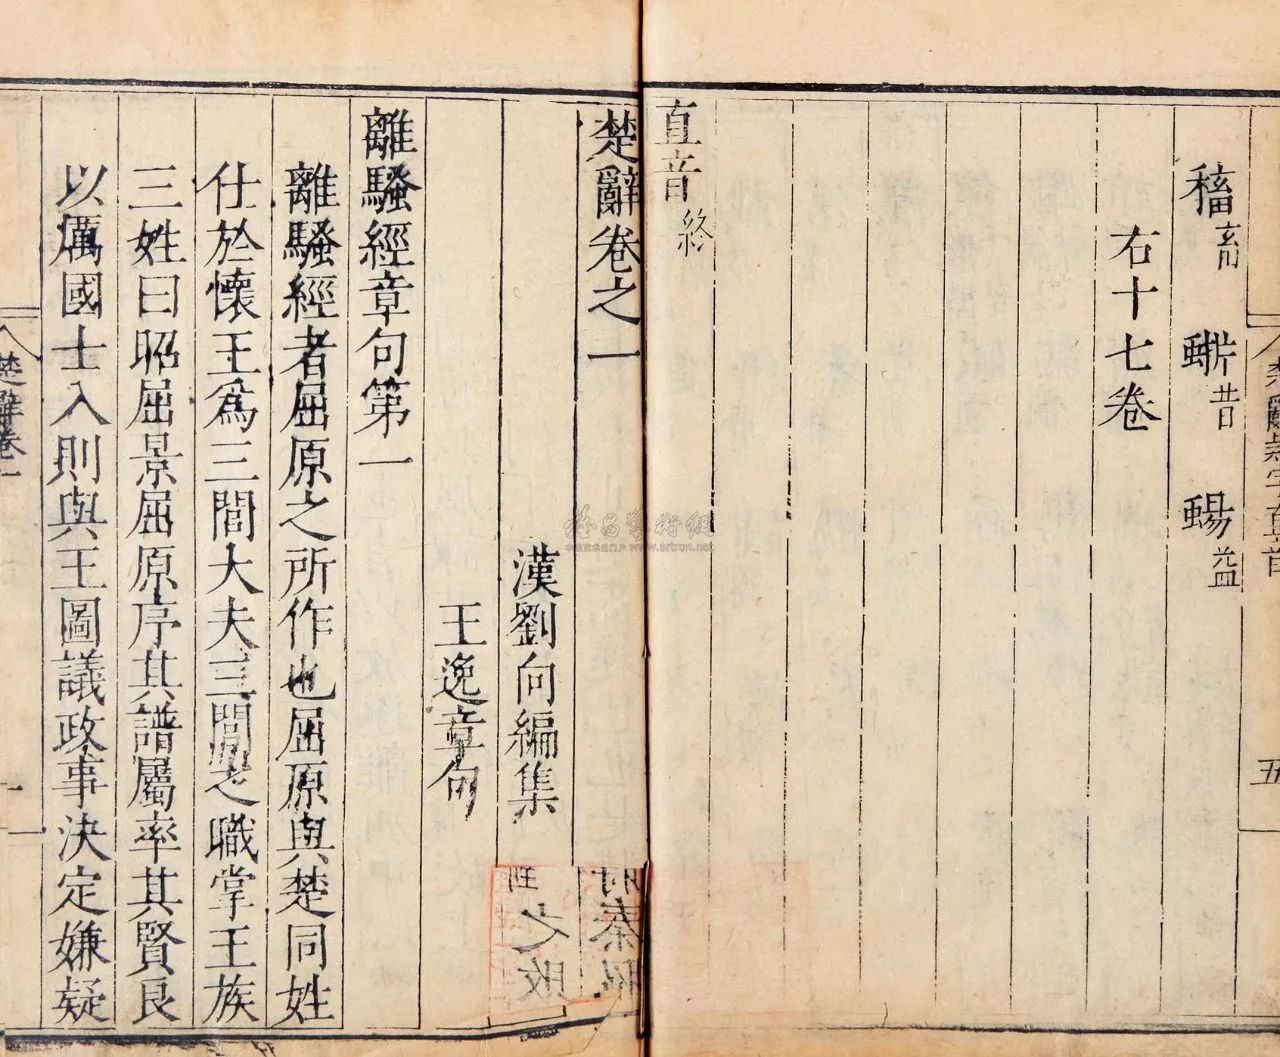 稸畜 蜥昔 蜴益
右十七卷
直音終
楚辭卷之一
漢劉向編集
王逸章句
離騷經章句第一
離騷經者屈原之所作也屈原與楚同姓
仕於懷王為三閭大夫三閭之職掌王族
三姓曰昭屈景屈原序其譜屬率其賢良
以厲國士入則與王圖議政事決定嫌疑
楚辭卷一
五
www.artron.net